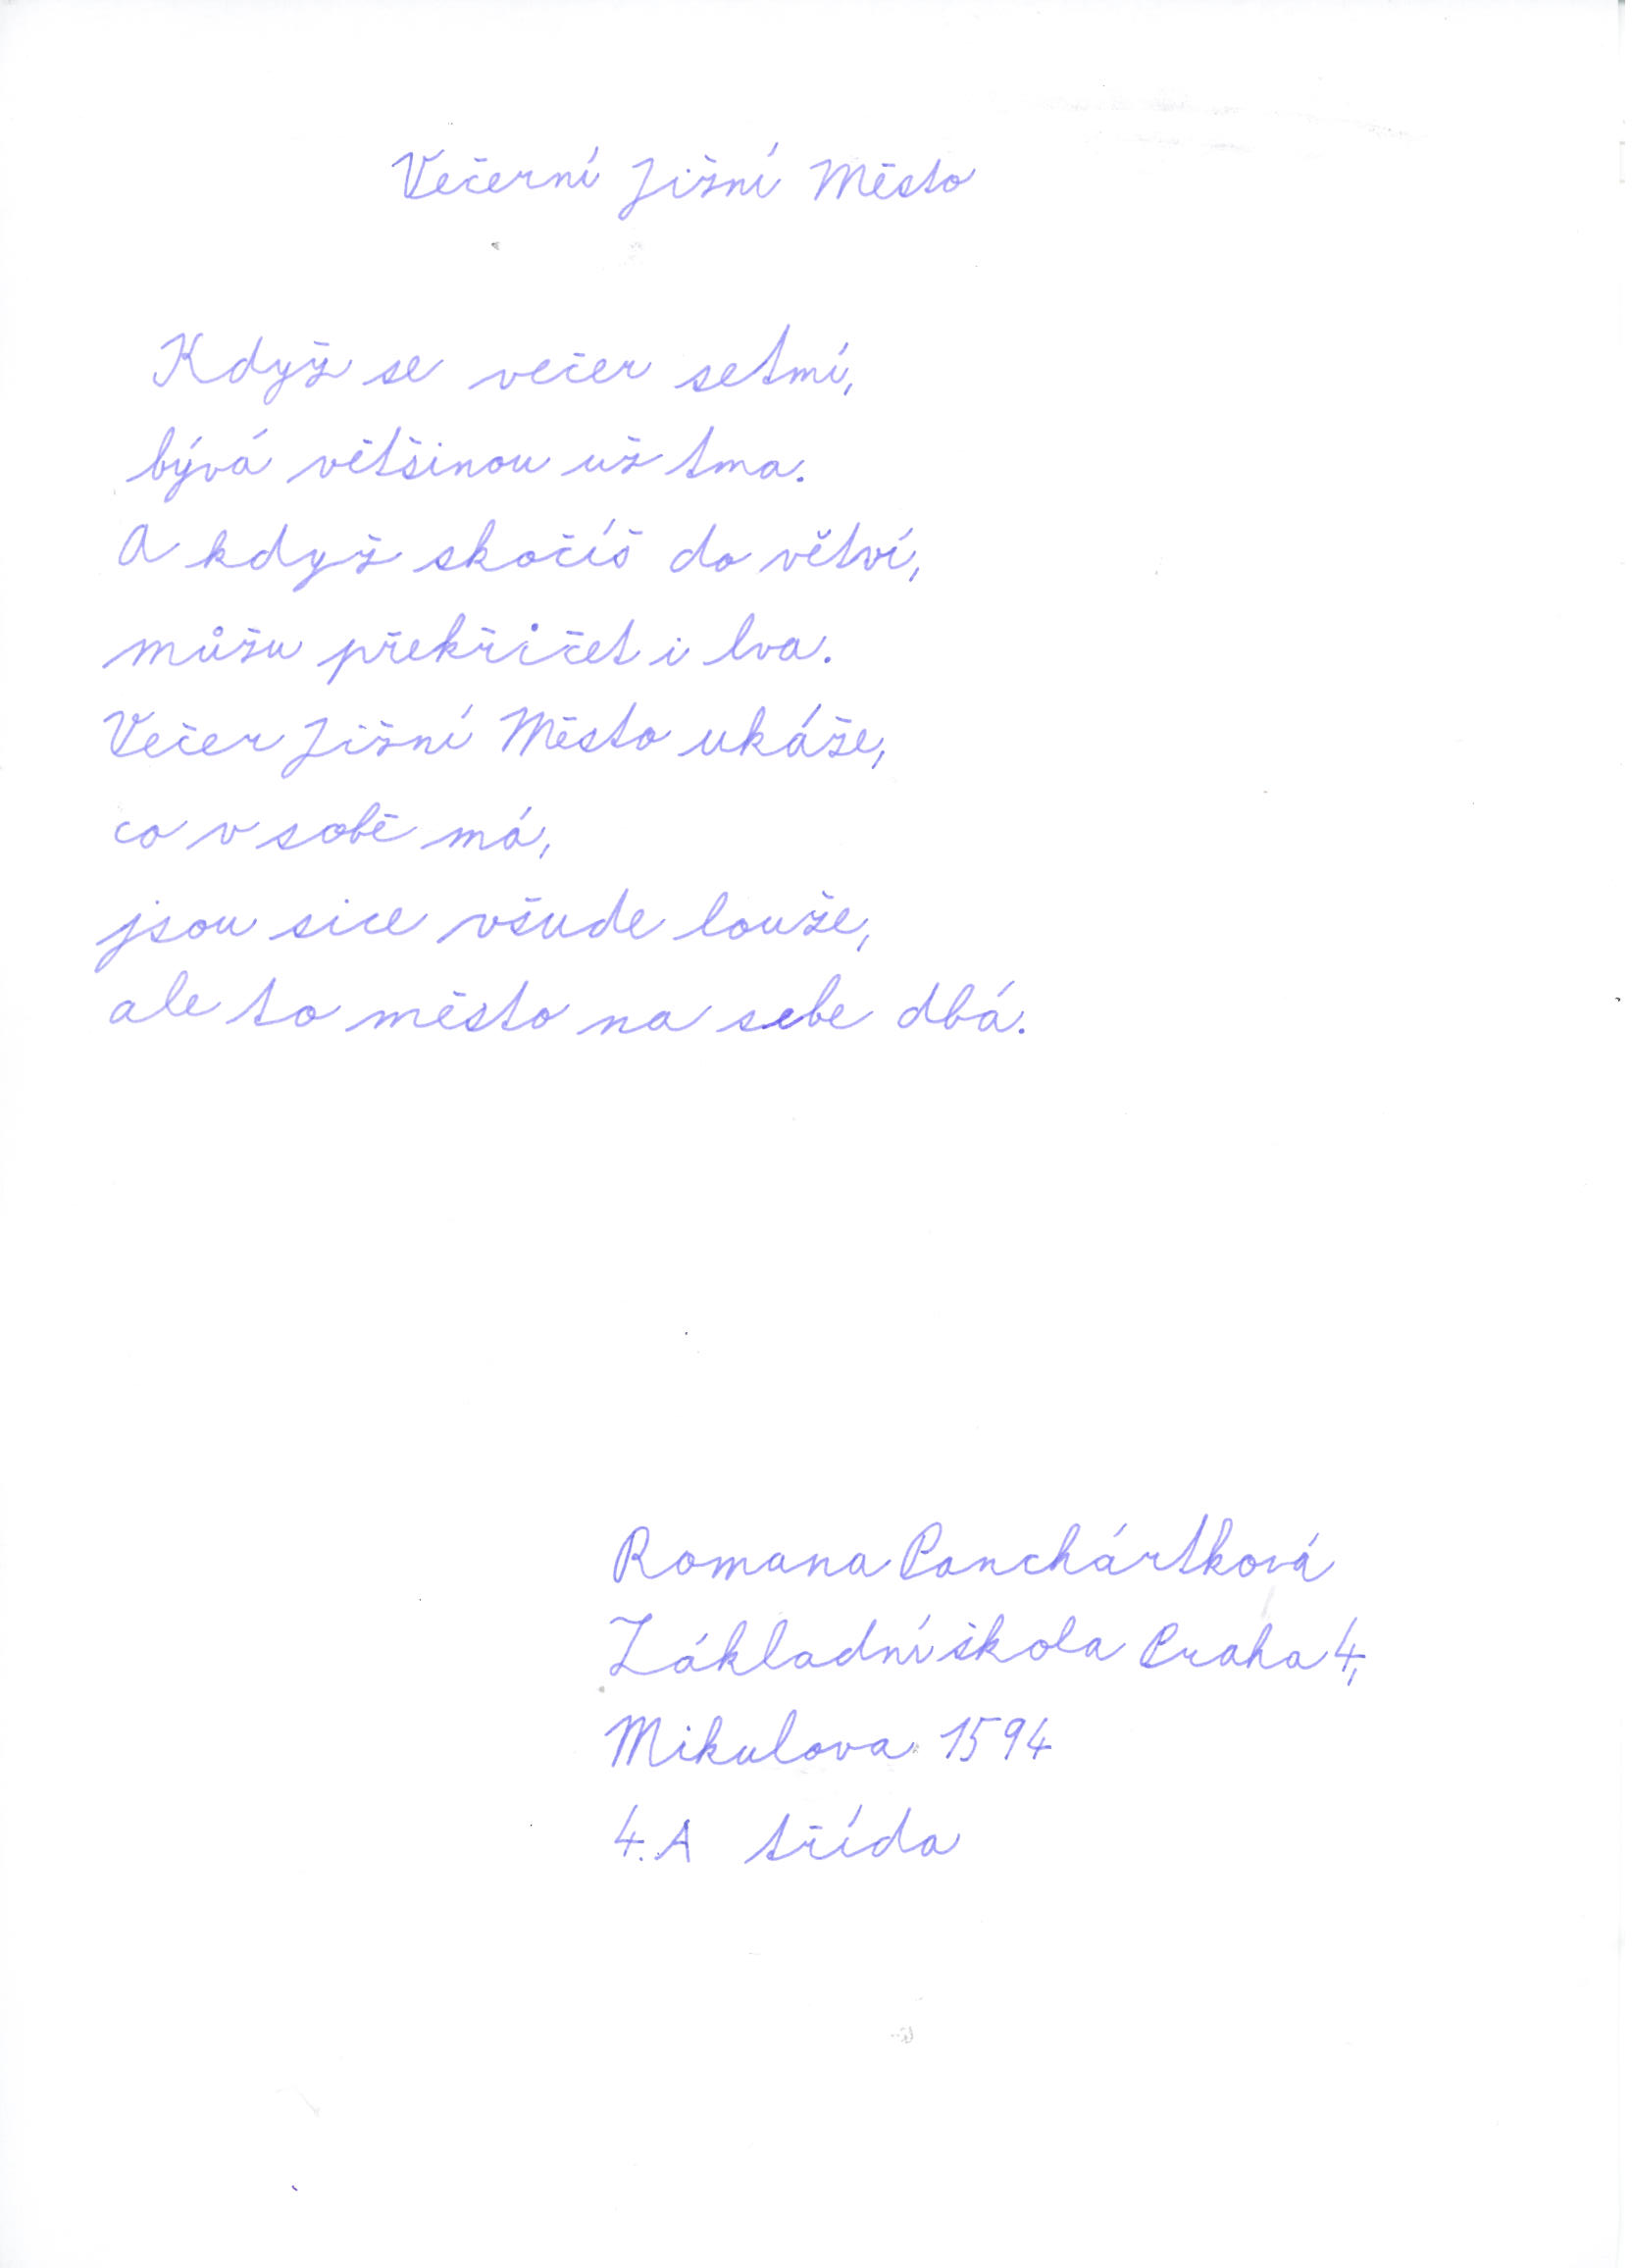 Večerní Jižní Město
Když se večer setmí,
bývá většinou už tma.
A když skočíš do větví,
můžu překřičet i lva.
Večer Jižní Město ukáže,
co v sobě má,
jsou sice všude louže,
ale to město na sebe dbá.
Romana Panchártková
Základní škola Praha 4,
Mikulova 1594
4.A třída